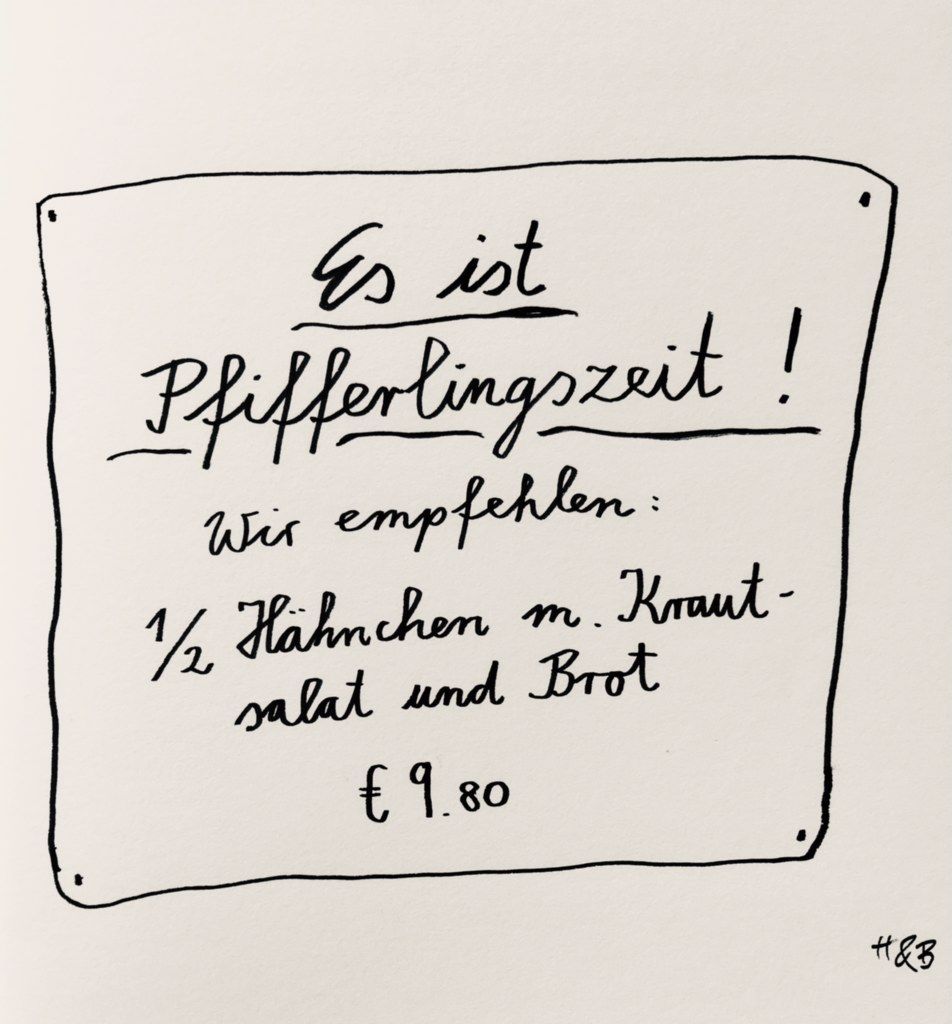 Es ist
Pfifferlingszeit!
Wir empfehlen:
1/2 Hähnchen m. Kraut-
salat und Brot
€ 9.80
H&B